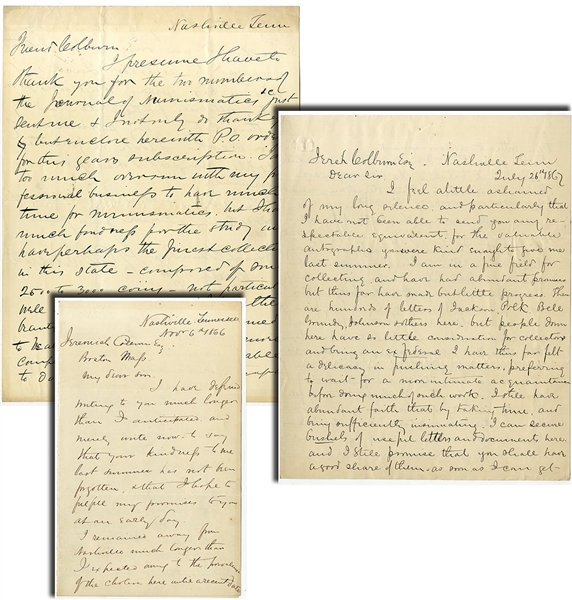 Nashville Tenn
Friend Colburn
I presume I have to
thank you for the two numbers of
the Journal of Numismatics &c just
sent me & I not only do thank
but enclose herewith P.O. order
for this years subscription. I am
too much overrun with my pro
fessional business to have much
time for numismatics. but I have
much fondness for the study and
have perhaps the finest collection
in this state - composed of some
2500 to 3000 coins - not particu
well
Jerh Colburn Esq. Nashville Tenn
Dear Sir July 26th 1867
I feel a little ashamed
of my long silence and particularly that
I have not been able to send you any re-
spectable equivalent, for the valuable
autographs you were kind enough to give me
last summer. I am in a fine field for
collecting and have had abundant promises
but thus far have made but little progress. There
are hundreds of letters of Jackson Polk Bell
Grundy, Johnson & others here, but people down
here have so little consideration for collectors
and being an I have thus far felt
a delicacy in pushing matters, preferring
to wait for a more intimate acquaintance
before doing much of such work. I still have
abundant faith that by taking time, and
being sufficiently insinuating I can secure
bushels of useful letters and documents here
and I still promise that you shall have
a good share of them - as soon as I can get
Nashville Tennessee
Nov 6th 1866
Jeremiah Colburn Esq.
Boston Mass
My dear Sir
I have deferred
writing to you much longer
than I anticipated and
merely write now to say
that your kindness to me
last summer has not been
forgotten, & that I hope to
fulfil my promises to you
at an early day
I remained away from
Nashville much longer than
I expected owing to the prevalence
of the cholera here until a recent date